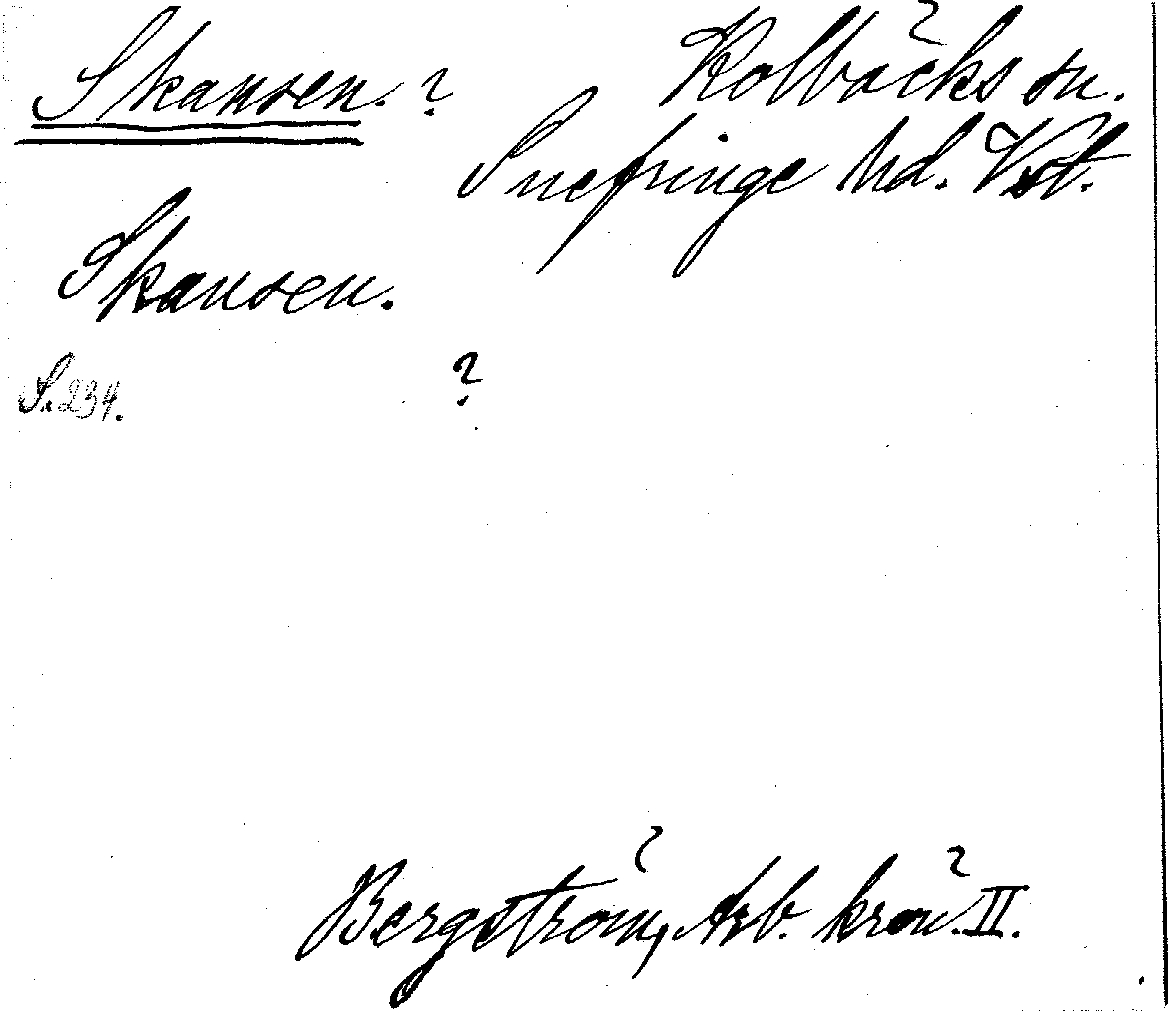 Skansen. ? Kolbäcks sn.
Snefringe hd. Vstl.
Skansen.
S. 234. ?
Bergström, Arb. krön. II.